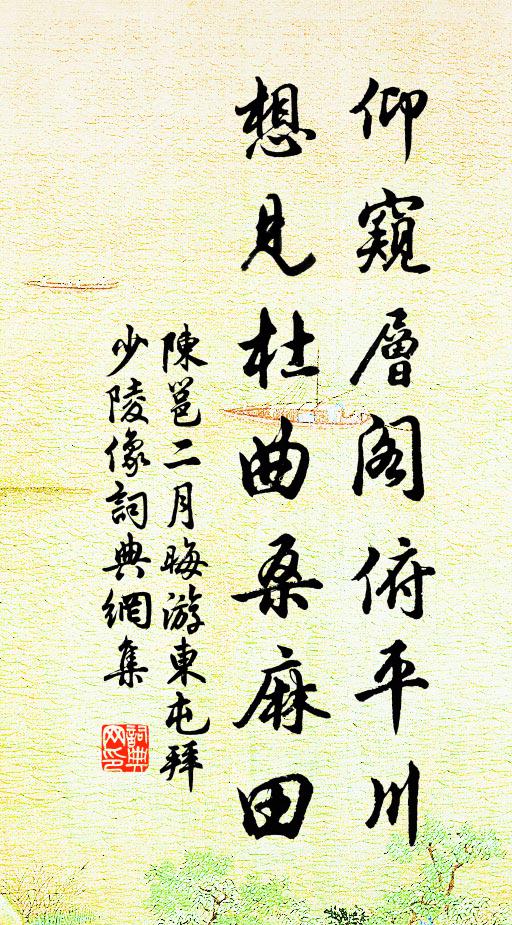 仰窺層閣俯平川
想見杜曲桑麻田
陳邕二月晦游東屯拜
少陵像詞典網集
詞典網印